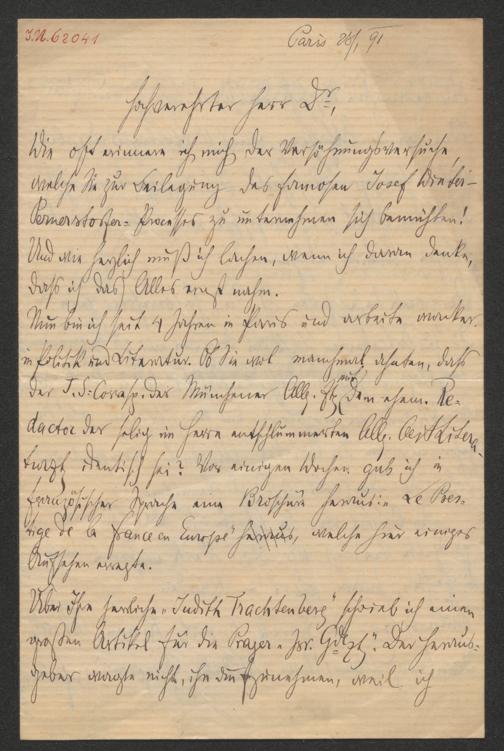 J.N. 62041
Paris 26/, 91
Hochverehrter Herr Dr.,
Wie oft erinnere ich mich der Versöhnungsversuche,
welche Sie zur Beilegung des famosen Josef Winter-
Pernerstorfer-Processes zu unternehmen sich bemühten!
Und wie herzlich muß ich lachen, wenn ich daran denke,
dass ich das Alles ernst nahm.
Nun bin ich seit 4 Jahren in Paris und arbeite wacker
in Politik und Literatur. Ob Sie wol manchmal ahnten, dass
der J.S.-Corresp. der Münchener Allg. Ztg. mit dem ehem. Re-
dactor der selig im Herrn entschlummerten Allg. Oest. Litera-
turztg identisch sei? Vor einigen Wochen gab ich in
französischer Sprache eine Broschüre heraus: „Le Pres-
tige de la France en Europe" heraus, welche hier einiges
Aufsehen erregte.
Über Ihre herrliche „Judith Trachtenberg" schrieb ich einen
großen Artikel für die Prager „Isr. Gdztg". Der Heraus-
geber wagte nicht, ihn aufzunehmen, weil ich